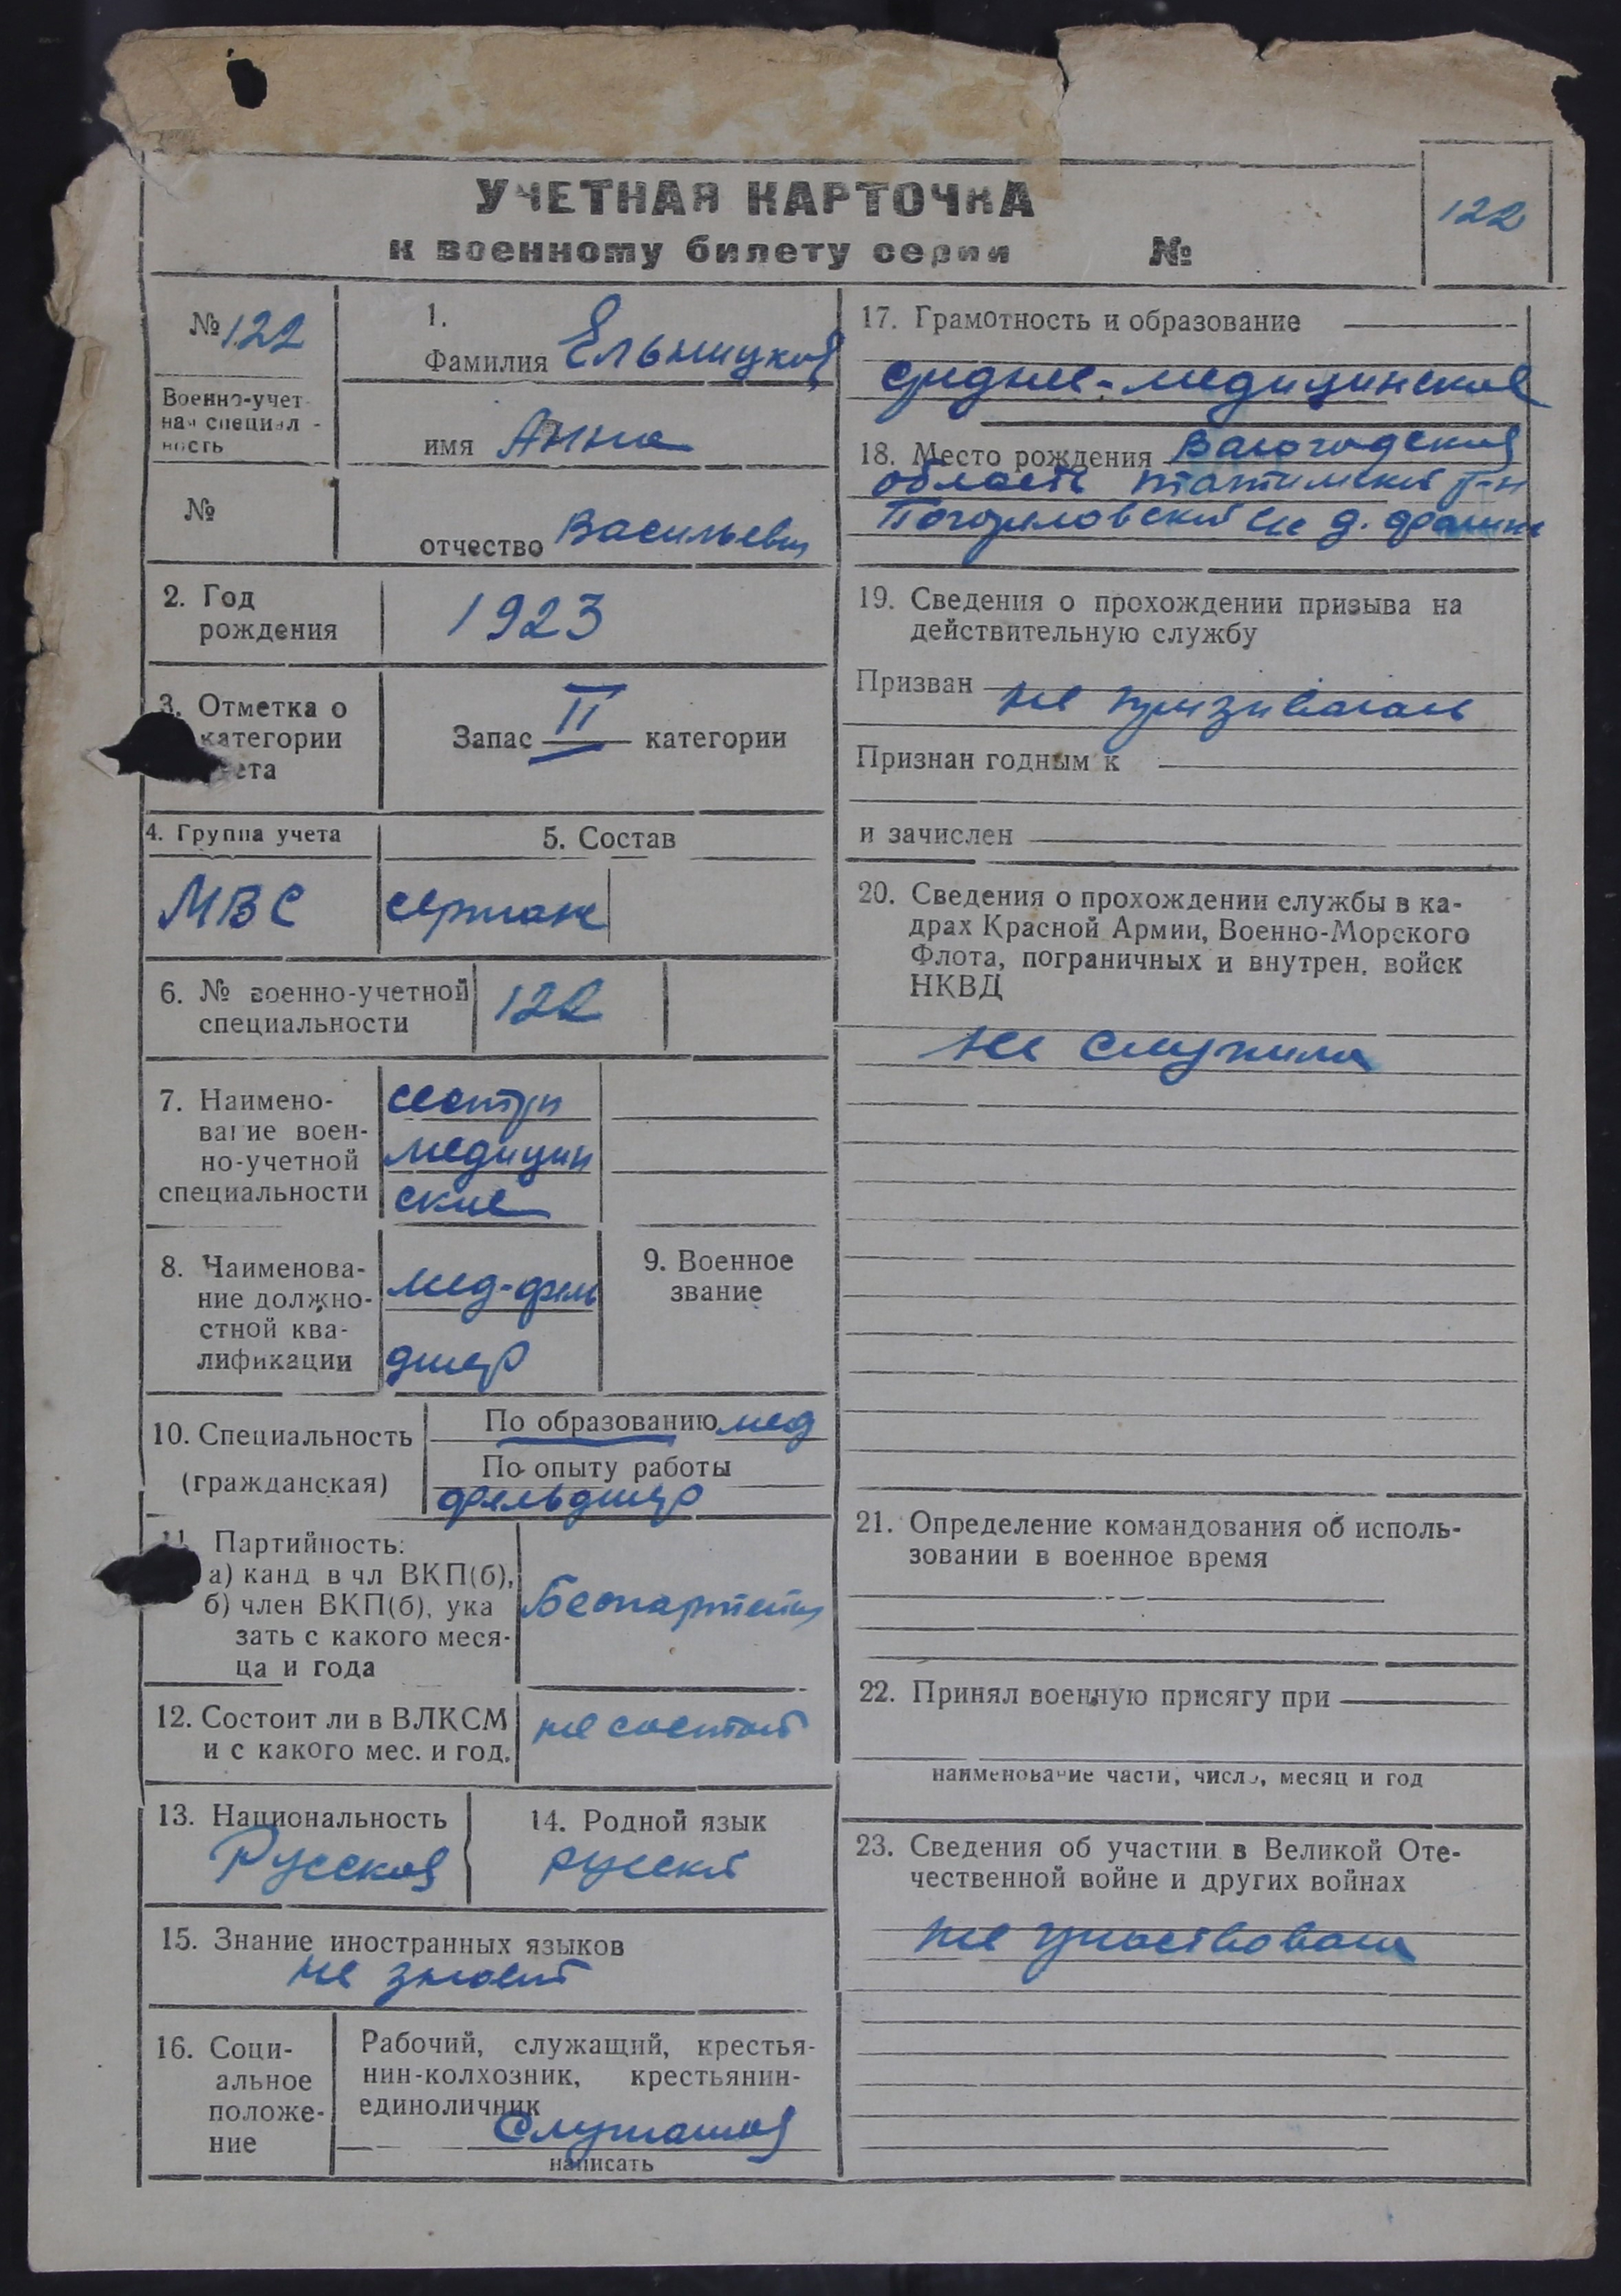 УЧЕТНАЯ КАРТОЧКА
к военному билету серии №
122
№ 122
Военно-учет-
ная специаль-
ность
№
1.
Фамилия Ельницкая
имя Анна
отчество Васильевн
2. Год
рождения
1923
3. Отметка о
категории
ета
Запас II категории
4. Группа учета
МВС
5. Состав
сержан
6. № военно-учетной
специальности
122
7. Наимено-
вание воен-
но-учетной
специальности
сестры
медицин
ские
8. Наименова-
ние должно-
стной ква-
лификации
мед-фель
дшер
9. Военное
звание
10. Специальность
(гражданская)
По образованию мед
По опыту работы
фельдшер
11. Партийность:
а) канд в чл ВКП(б),
б) член ВКП(б), ука
зать с какого меся-
ца и года
Беспартейн
12. Состоит ли в ВЛКСМ
и с какого мес. и год.
не состоит
13. Национальность
Русская
14. Родной язык
русский
15. Знание иностранных языков
не знает
16. Соци-
альное
положе-
ние
Рабочий, служащий, крестья-
нин-колхозник, крестьянин-
единоличник
Служащая
написать
17. Грамотность и образование
средне-медицинское
18. Место рождения Вологодская
область тотемский р-н
Погореловский с/с д.
19. Сведения о прохождении призыва на
действительную службу
Призван
не призывалась
Признан годным к
и зачислен
20. Сведения о прохождении службы в ка-
драх Красной Армии, Военно-Морского
Флота, пограничных и внутрен. войск
НКВД
не служила
21. Определение командования об исполь-
зовании в военное время
22. Принял военную присягу при
наименование части, число, месяц и год
23. Сведения об участии в Великой Оте-
чественной войне и других войнах
не участвовала